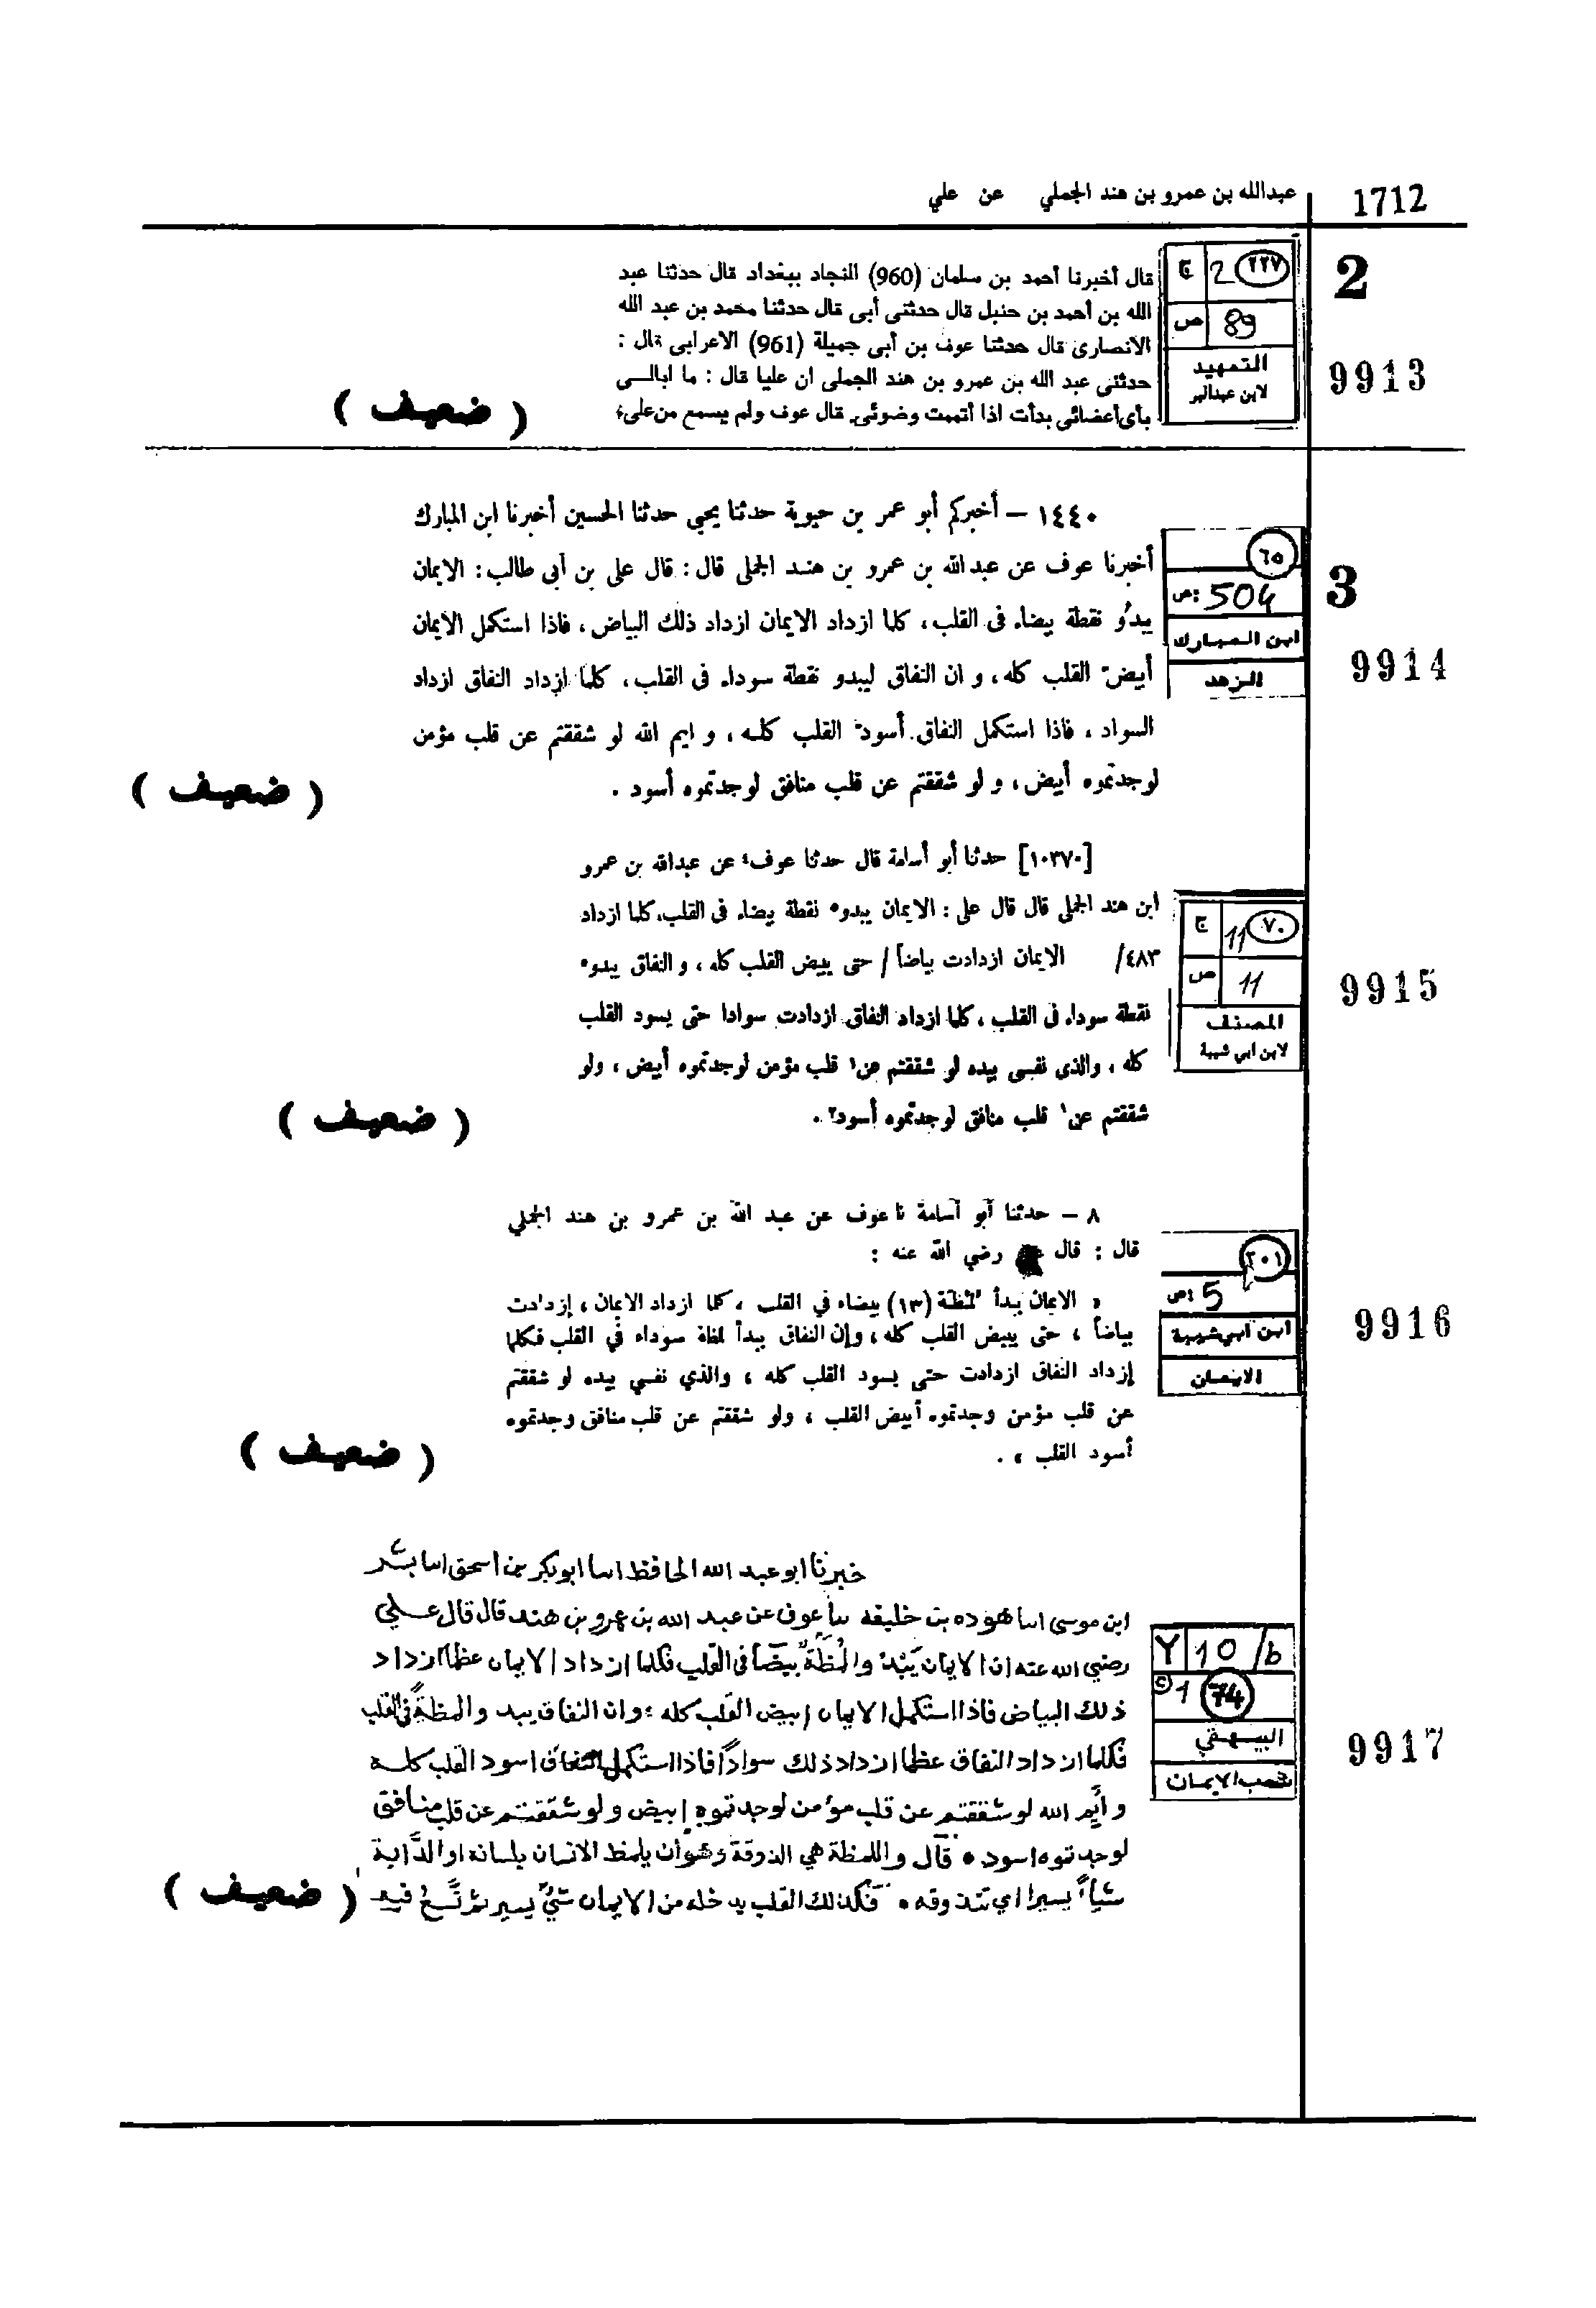 1712
عبدالله بن عمرو بن هند الجملي عن علي
2
9913
٢٢٧ 2 ج
89 ص
التمهيد
لابن عبدالبر
قال أخبرنا أحمد بن سلمان (960) النجاد ببغداد قال حدثنا عبد
الله بن أحمد بن حنبل قال حدثنى أبى قال حدثنا محمد بن عبد الله
الانصارى قال حدثنا عوف بن أبى جميلة (961) الاعرابى قال :
حدثنى عبد الله بن عمرو بن هند الجملى ان عليا قال : ما ابالــى
بأى أعضائى بدأت اذا أتممت وضوئى. قال عوف ولم يسمع من على؛
( ضعيف )
3
9914
٦٥
ص: 504
ابن المبارك
الزهد
١٤٤٠ – أخبركم أبو عمر بن حيوية حدثنا يحيي حدثنا الحسين أخبرنا ابن المبارك
أخبرنا عوف عن عبد الله بن عمرو بن هنـد الجملى قال : قال على بن أبى طالب : الايمان
يبدُو نقطة بيضاء فى القلب ، كلما ازداد الايمان ازداد ذلك البياض ، فاذا استكمل الايمان
أبيضّ القلب كله ، و ان النفاق ليبدو نقطة سوداء فى القلب ، كلما ازداد النفاق ازداد
السواد ، فاذا استكمل النفاق أسودّ القلب كلـه ، و ايم الله لو شققتم عن قلب مؤمن
لوجدتموه أبيض ، و لو شققتم عن قلب منافق لوجدتموه أسود .
( ضعيف )
9915
٧٠ 11 ج
11 ص
المصنف
لابن ابي شيبة
[١٠٣٧٠] حدثنا أبو أسامة قال حدثنا عوف٤ عن عبدالله بن عمرو
ابن هند الجملى قال قال على : الايمان يبدو٥ نقطة بيضاء فى القلب، كلما ازداد
٤٨٣/ الايمان ازدادت بياضاً / حتى يبيض القلب كله ، و النفاق يبدو٥
نقطة سوداء فى القلب ، كلما ازداد النفاق ازدادت سوادا حتى يسود القلب
كله ، والذى نفسى بيده لو شققتم عن١ قلب مؤمن لوجدتموه أبيض ، ولو
شققتم عن١ قلب منافق لوجدتموه أسود٢ .
( ضعيف )
9916
٢٠١
ص: 5
ابن ابي شيبة
الايمان
٨ – حدثنا أبو أسامة نا عوف عن عبد الله بن عمرو بن هند الجملي
قال : قال رضي الله عنه :
« الايمان يبدأ لمظة (١٣) بيضاء في القلب ، كلما ازداد الايمان ، إزدادت
بياضاً ، حتى يبيض القلب كله ، وإن النفاق يبدأ لمظة سوداء في القلب فكلما
إزداد النفاق ازدادت حتى يسود القلب كله ، والذي نفسي بيده لو شققتم
عن قلب مؤمن وجدتموه أبيض القلب ، ولو شققتم عن قلب منافق وجدتموه
أسود القلب » .
( ضعيف )
9917
Y 10/b
© 1 74
البيهقي
شعب الايمان
خبرنا ابو عبد الله الحافظ اسا ابو بكر بن اسحق اسا بشر
ابن موسى اسا هوده بن خليفه سا عوف عن عبد الله بن عمرو بن هند قال قال علي
رضي الله عنه ان الايمان يَبْدُ والمُظَةً بيضًا فى القلب فكلما ازداد الايمان عظما ازداد
ذلك البياض فاذا استكمل الايمان ابيض القلب كله ؛ وان النفاق يبد والمظة فى القلب
فكلما ازداد النفاق عظما ازداد ذلك سوادًا فاذا استكمل النفاق اسود القلب كلـه
وأيم الله لو شققتم عن قلب مؤمن لوجدتموه ابيض ولو شققتم عن قلب منافق
لوجدتموه اسود • قال واللمظة هي الذوقة وهو أن يلمظ الانسان بلسانه او الدَّابة
شيأً يسيرا اي تتذوقه • فكذلك القلب يدخله من الايمان شيءٌ يسير ثم يتَّسعُ فيه
( ضعيف )